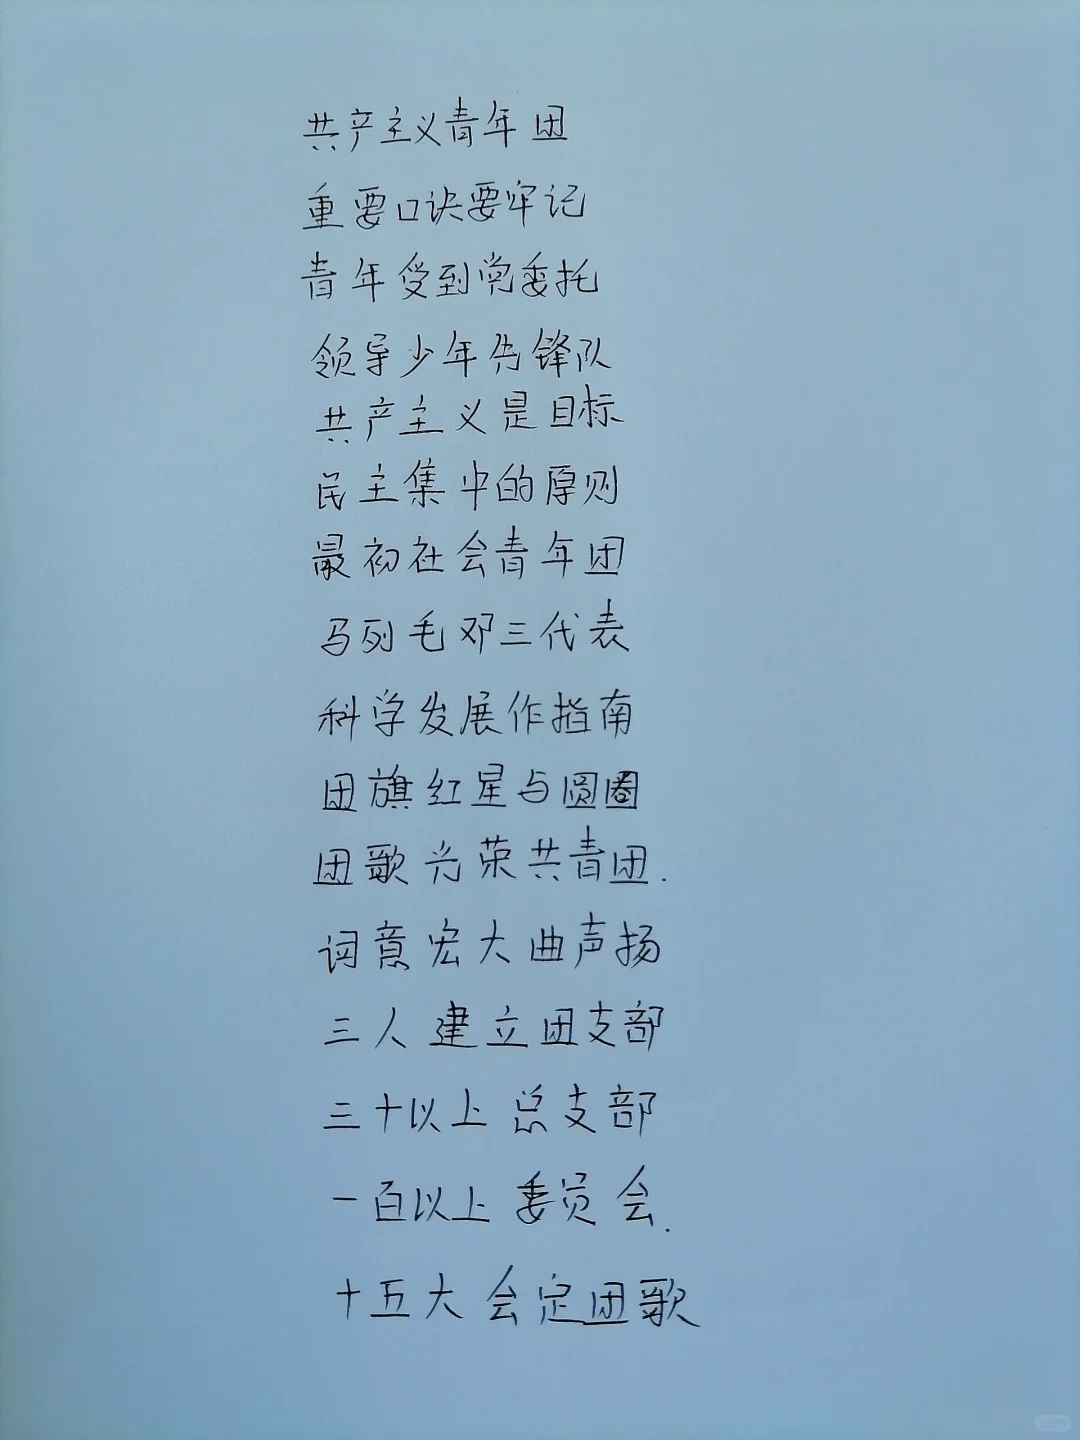 共产主义青年团
重要口诀要牢记
青年受到党委托
领导少年先锋队
共产主义是目标
民主集中的原则
最初社会青年团
马列毛邓三代表
科学发展作指南
团旗红星与圆圈
团歌光荣共青团.
词意宏大曲声扬
三人建立团支部
三十以上总支部
一百以上委员会.
十五大会定团歌